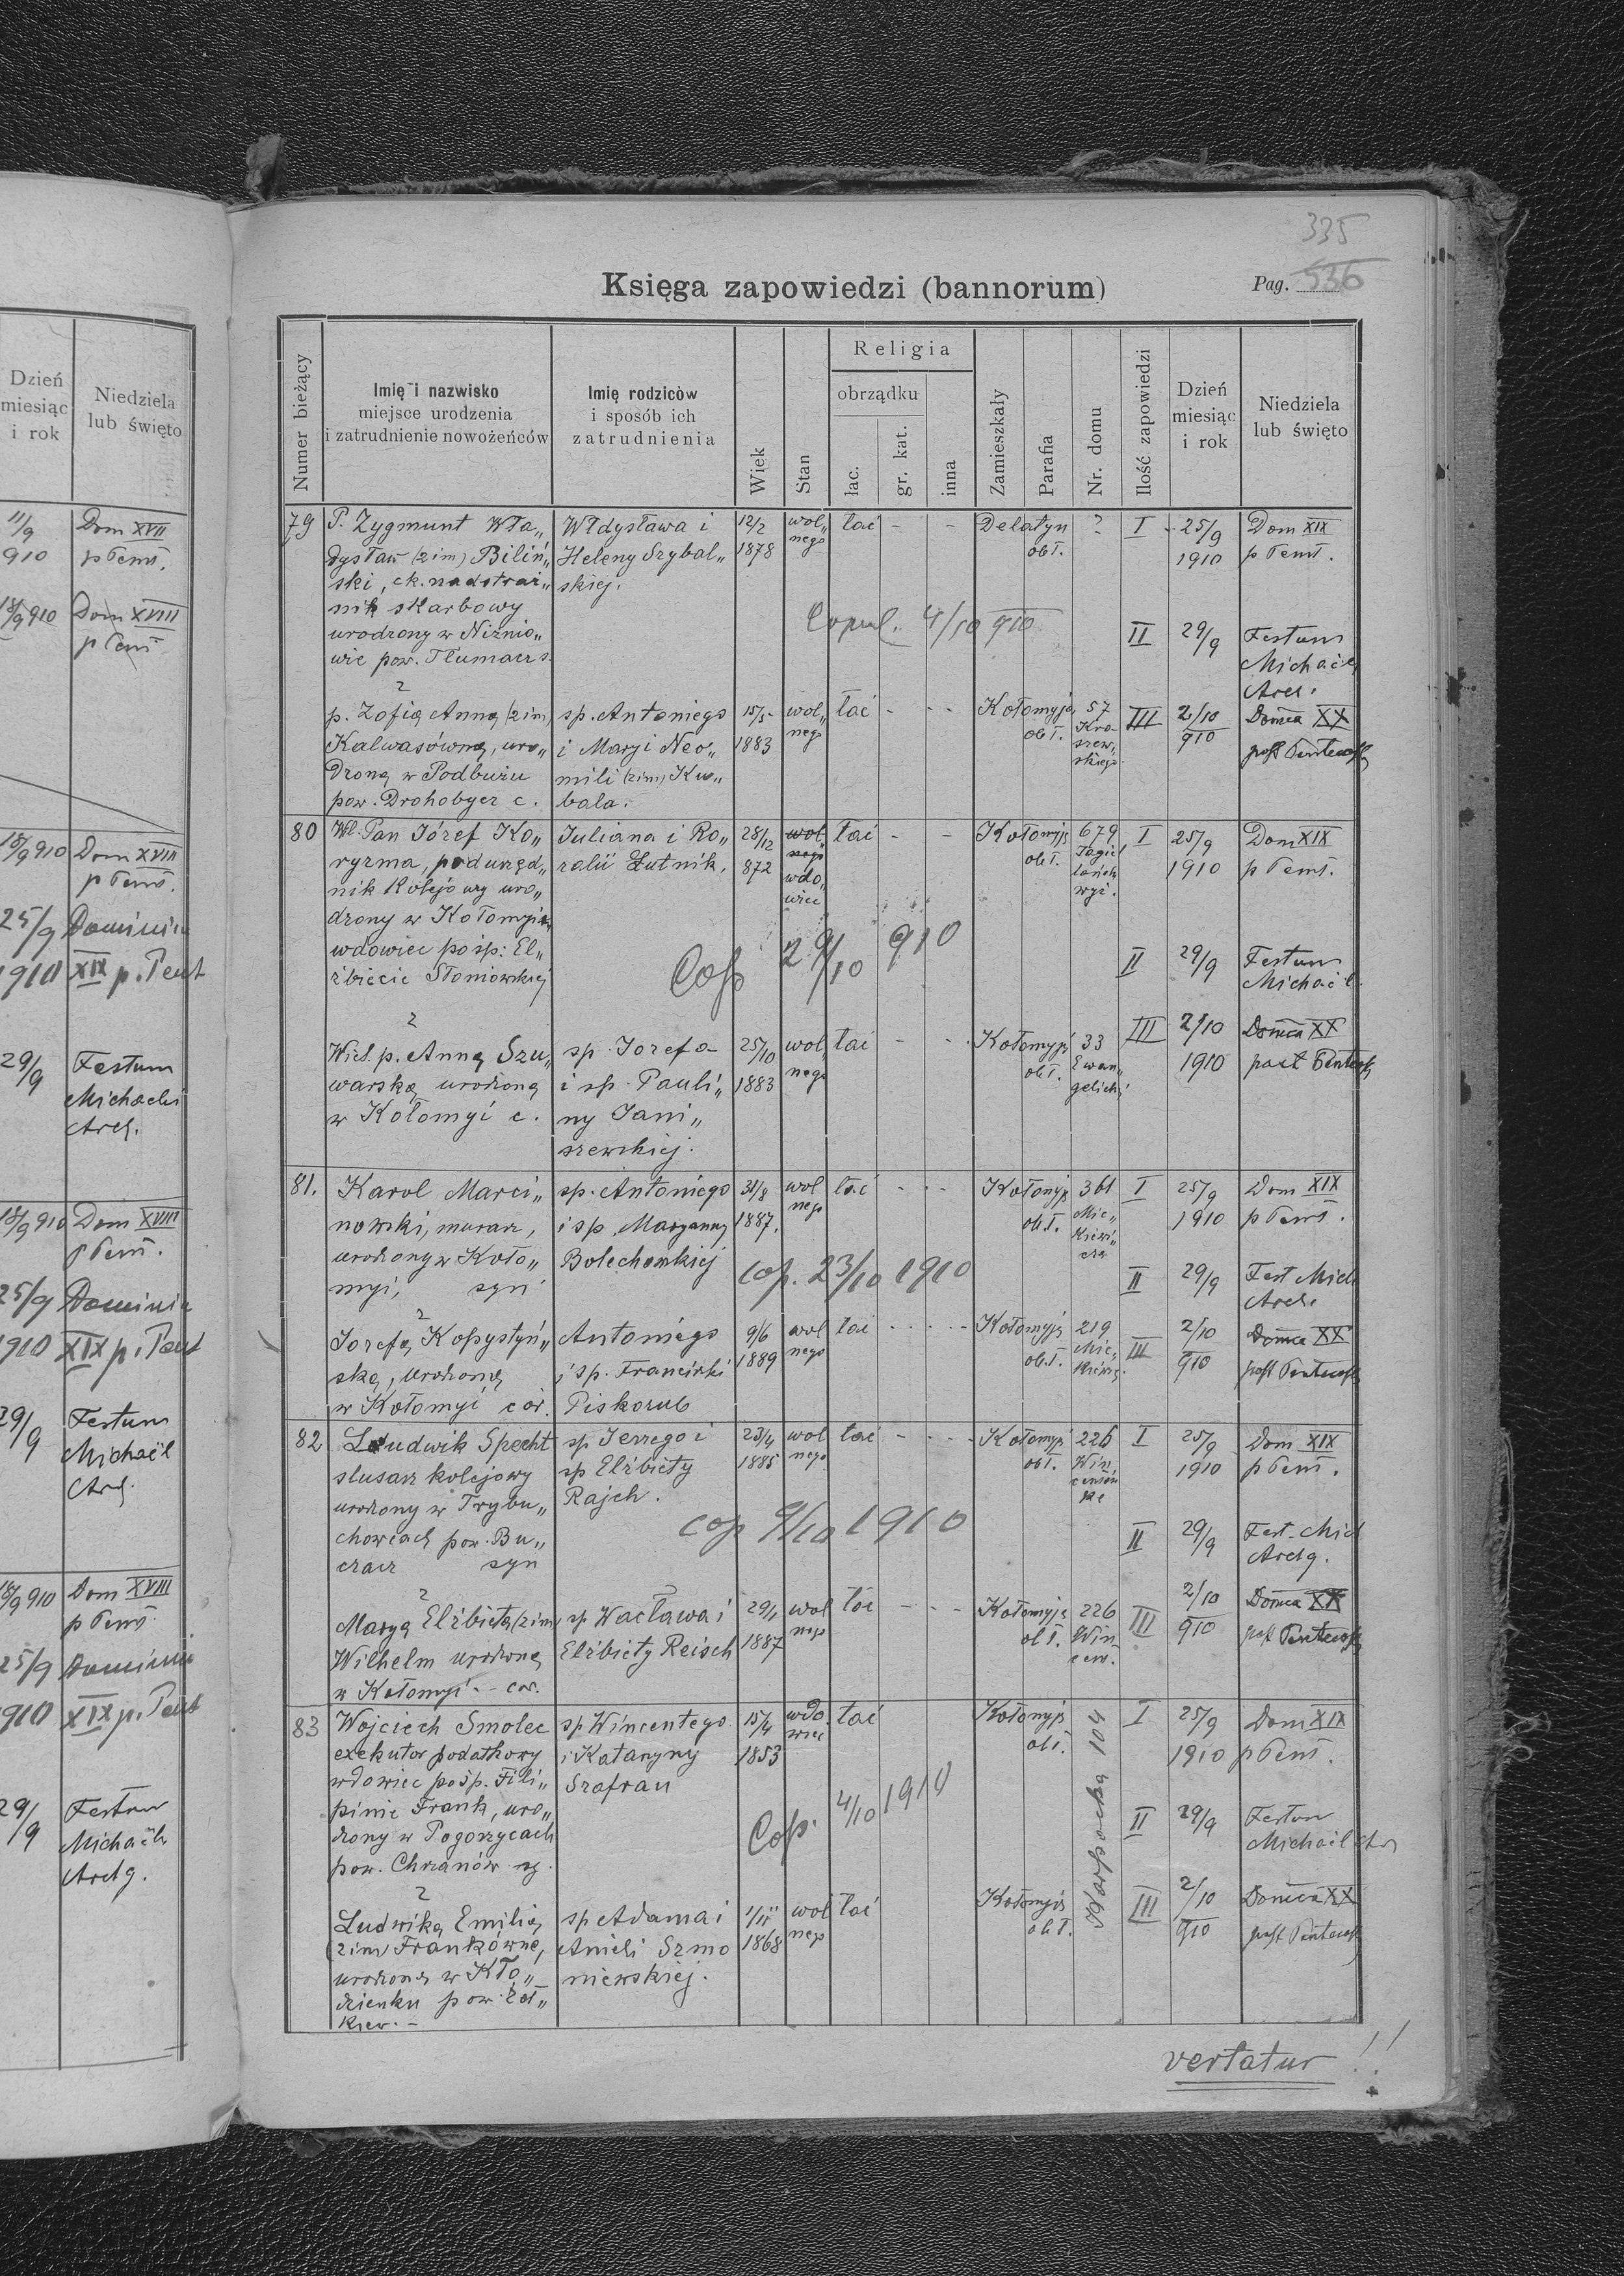 335
Księga zapowiedzi (bannorum)
Pag. 536
Dzień
miesiąc
i rok
Niedziela
lub święto
11/9
910
Dom XVII
p Pent.
18/9 910
Dom XVIII
p Pent
18/9 910
Dom XVIII
p Pent.
25/9
1910
Dominica
XIX p. Pent
29/9
Festum
Michaelis
Arch.
18/9 910
Dom XVIII
p Pent.
25/9
1910
Dominica
XIX p. Pent
29/9
Festum
Michaël
Arch.
18/9 910
Dom XVIII
p Pent
25/9
1910
Dominica
XIX p. Pent
29/9
Festum
Michaël
Archg.
Numer bieżący
Imię i nazwisko
miejsce urodzenia
i zatrudnienie nowożeńców
Imię rodziców
i sposób ich
zatrudnienia
Wiek
Stan
Religia
obrządku
łac.
gr. kat.
inna
Zamieszkały
Parafia
Nr. domu
Ilość zapowiedzi
Dzień
miesiąc
i rok
Niedziela
lub święto
79
P. Zygmunt Wła„
dysław (2 im) Biliń„
ski, ck. nadstraż„
nik skarbowy
urodzony w Niżnio„
wie pow. Tłumacz s.
Włdysława i
Heleny Szybal„
skiej.
12/2
1878
wol„
nego
łać - -
Delatyn
ob ł.
?
I
25/9
1910
Dom XIX
p Pent.
Copul. 4/10 910
II
29/9
Festum
Michaël
Arch.
z
p. Zofią Anną (2 im)
Kalwasówną, uro„
dzoną w Podbużu
pow. Drohobycz c.
sp. Antoniego
i Maryi Neo„
mili (2 im) Ku„
bala.
15/5
1883
wol„
nego
łać - - -
Kołomyja
ob ł.
57
Kra„
szew„
skiego
III
2/10
910
Domca XX
post Pentecost
80
Wl. Pan Józef Ko„
ryzma, podurzęd„
nik kolejowy uro„
dzony w Kołomyi
wdowiec po śp: El„
żbiecie Słoniowskiej
Juliana i Ro„
zalii Łutnik.
28/12
872
wol
nego
wdo„
wiec
łać - -
Kołomyja
ob ł.
679
Jagiel
lońsk
wyż.
I
25/9
1910
Dom XIX
p Pent.
Cop 29/10 910
II
29/9
Festum
Michaël.
z
Wiel. p. Anną Szu„
warską urodzoną
w Kołomyi c.
sp. Jozefa
i sp. Pauli„
ny Jani„
szewskiej.
25/10
1883
wol
nego
łać - -
Kołomyja
ob ł.
33
Ewan„
gelicka
III
2/10
1910
Domca XX
post Pentecost
81.
Karol Marci„
nowski, murarz,
urodzony w Koło„
myi, syn
sp. Antoniego
i sp. Maryanny
Bolechowskiej
31/8
1887.
wol
nego
łać - - -
Kołomyja
ob ł.
361
Mic„
kiewi„
cza
I
25/9
1910
Dom XIX
p Pent.
cop. 23/10 1910
II
29/9
Fest Mich
Arch.
z
Jozefą Kopystyń„
ską, urodzoną
w Kołomyi cór.
Antoniego
i sp. Franciszki
Piskozub
9/6
1889
wol
nego
łać - - - -
Kołomyja
ob. ł.
219
Mic„
kiewicz.
III
2/10
910
Domca XX
post Pentecost
82
Ludwik Specht
slusarz kolejowy
urodzony w Trybu„
chowcach pow. Bu„
czacz syn
sp Jerzego i
sp Elżbiety
Rajch.
23/4
1885
wol
nego
łać - - - -
Kołomyja
ob ł.
226
Win
centów
ka
I
25/9
1910
Dom XIX
p Pent.
cop 9/10 1910
II
29/9
Fest. Mich
Archg.
z
Maryą Elżbietą (2 im)
Wilhelm urodzoną
w Kołomyi - cór.
sp Wacława i
Elżbiety Reisch
29/1
1887
wol
nego
łać - - -
Kołomyja
ob ł.
226
Win
cen.
III
2/10
910
Domca XX
post Pentecost
83
Wojciech Smolec
exekutor podatkowy
wdowiec po śp. Fili„
pinie Frank, uro„
dzony w Pogorzycach
pow. Chrzanów sy.
sp Wincentego
i Katarzyny
Szafran
15/4
1853
wdo
wiec
łać
Kołomyja
ob ł.
Karpacka 104
I
25/9
1910
Dom XIX
p Pent.
Cop. 4/10 1910
II
29/9
Festum
Michaël Arch
z
Ludwiką Emilią
(2 im) Frankówną,
urodzoną w Kło„
dzienku pow. Żół„
kiew. -
sp Adama i
Anieli Szmo
niewskiej.
1/11
1868
wol
nego
łać
Kołomyja
ob ł.
III
2/10
910
Domca XX
post Pentecost
vertatur!!